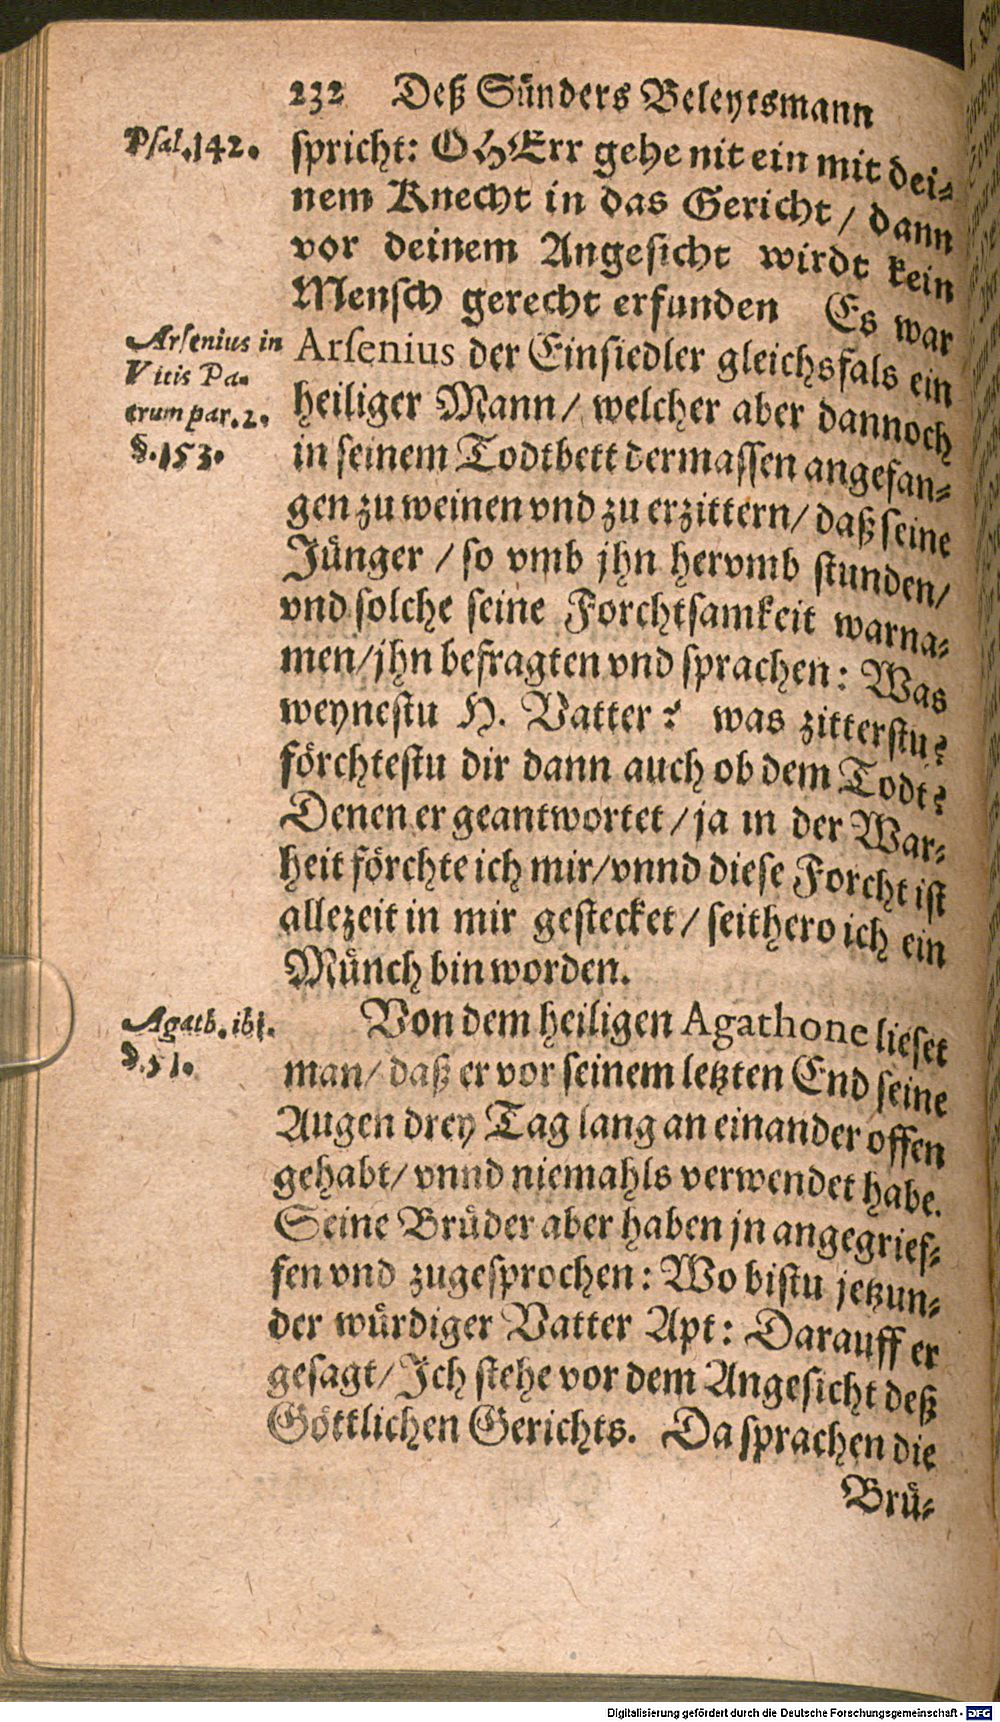 232 Deß Sünders Beleytsmann
Psal.142.
spricht: O HErr gehe nit ein mit dei-
nem Knecht in das Gericht / dann
vor deinem Angesicht wirdt kein
Mensch gerecht erfunden Es war
Arsenius in
Vitis Pa-
trum par.2.
§.153.
Arsenius der Einsiedler gleichsfals ein
heiliger Mann / welcher aber dannoch
in seinem Todtbett dermassen angefan-
gen zu weinen vnd zu erzittern / daß seine
Jünger / so vmb jhn hervmb stunden /
vnd solche seine Forchtsamkeit warna-
men / jhn befragten vnd sprachen: Was
weynestu H. Vatter? was zitterstu?
förchtestu dir dann auch ob dem Todt?
Denen er geantwortet / ja in der War-
heit förchte ich mir / vnnd diese Forcht ist
allezeit in mir gestecket / seithero ich ein
Münch bin worden.
Agath. ibi.
§.51.
Von dem heiligen Agathone lieset
man / daß er vor seinem letzten End seine
Augen drey Tag lang an einander offen
gehabt / vnnd niemahls verwendet habe.
Seine Brüder aber haben jn angegrief-
fen vnd zugesprochen: Wo bistu jetzun-
der würdiger Vatter Apt: Darauff er
gesagt / Ich stehe vor dem Angesicht deß
Göttlichen Gerichts. Da sprachen die
Brü-
Digitalisierung gefördert durch die Deutsche Forschungsgemeinschaft - DFG